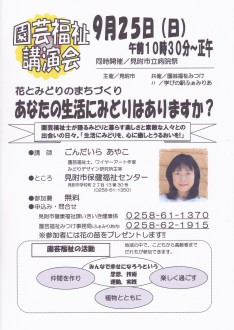 園芸福祉
講演会
9月25日(日)
午前10時30分~正午
同時開催/見附市立病院祭
主催/見附市
共催/園芸福祉みつけ
花とみどりのまちづくり
あなたの生活にみどりはありますか?
園芸福祉士が語るみどりと暮らす楽しさと素敵な人々との
出会いの日々。「生活にみどりを、心に癒しとうるおいを!」
●講師 ごんだいら あやこ
園芸福祉士、ワイヤーアート作家
みどりデザイン研究所主宰
●ところ 見附市保健福祉センター
見附市学校町2丁目13番30号
●参加費 無料
●申込み・問合せ
見附市健康福祉課いきいき健康係 0258-61-1370
園芸福祉みつけ事務局 0258-62-1915
※参加者には花の苗をプレゼントします!!
園芸福祉の活動
みんなで幸せになろうという
思想、技術
運動、実践
仲間を作り
楽しく過ごす
植物とともに